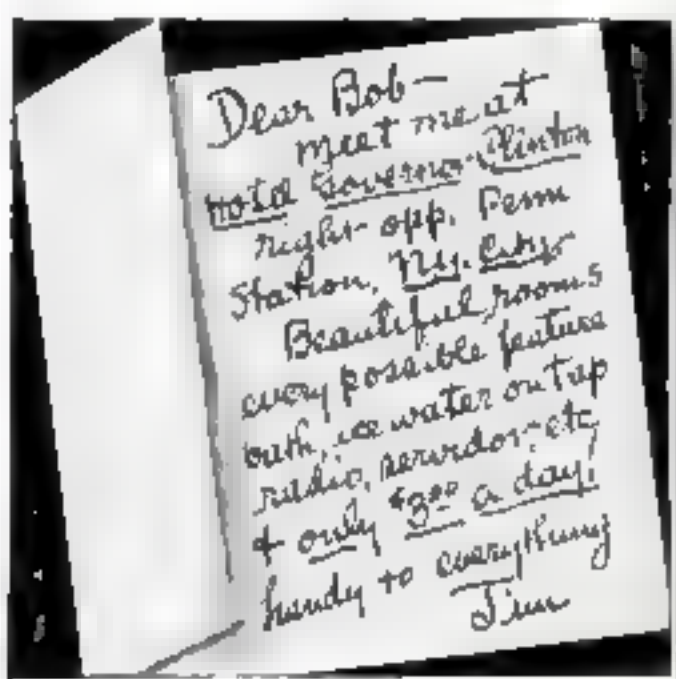 Dear Bob—
meet me at
Hotel Governor Clinton
right opp. Penn
Station, N.Y. City
Beautiful rooms
every possible feature
bath, ice water on tap
radio, servidor-etc
+ only $3.00 a day!
handy to everything
Jim